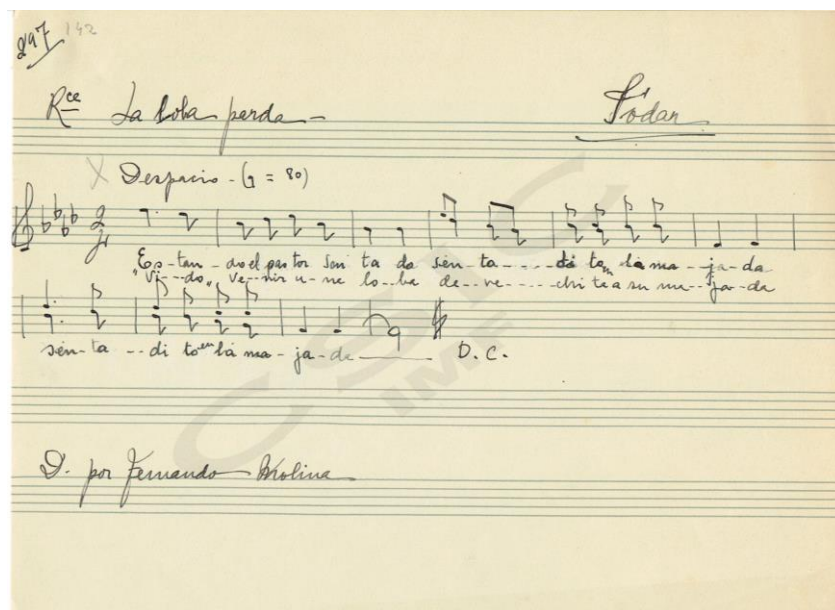 297 142
Rce La loba parda
Tódar
X Despacio - (♩ = 80)
Es-tan-do el pastor sen ta do sen-ta-----di to en la ma--ja-da
"Vi--do" ve-nir u-na lo--ba de-re-----chi ta a su ma--ja-da
sen-ta--di to en la ma-ja-da D. C.
D. por Fernando Molina
CSIC
IMF